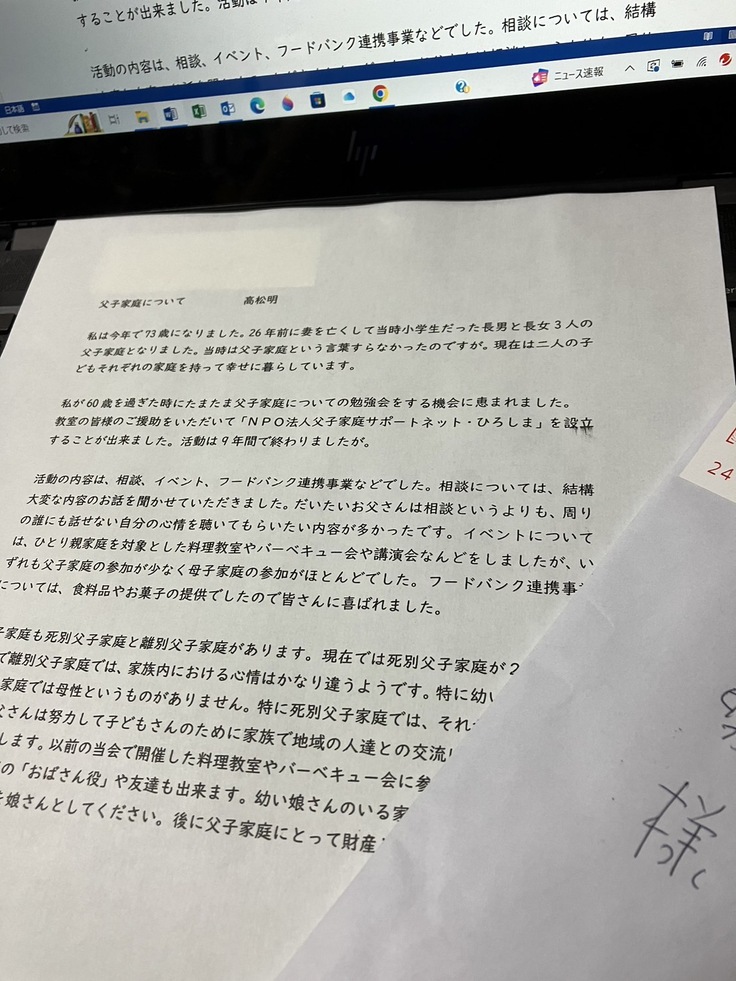 することが出来ました。活動は
活動の内容は、相談、イベント、フードバンク連携事業などでした。相談については、結構
日本語
して検索
ニュース速報
hp
父子家庭について 高松明
私は今年で73歳になりました。26年前に妻を亡くして当時小学生だった長男と長女3人の
父子家庭となりました。当時は父子家庭という言葉すらなかったのですが。現在は二人の子
どもそれぞれの家庭を持って幸せに暮らしています。
私が60歳を過ぎた時にたまたま父子家庭についての勉強会をする機会に恵まれました。
教室の皆様のご援助をいただいて「NPO法人父子家庭サポートネット・ひろしま」を設立
することが出来ました。活動は9年間で終わりましたが。
活動の内容は、相談、イベント、フードバンク連携事業などでした。相談については、結構
大変な内容のお話を聞かせていただきました。だいたいお父さんは相談というよりも、周り
の誰にも話せない自分の心情を聴いてもらいたい内容が多かったです。イベントについて
は、ひとり親家庭を対象とした料理教室やバーベキュー会や講演会なんどをしましたが、い
ずれも父子家庭の参加が少なく母子家庭の参加がほとんどでした。フードバンク連携事
については、食料品やお菓子の提供でしたので皆さんに喜ばれました。
子家庭も死別父子家庭と離別父子家庭があります。現在では死別父子家庭が2
で離別父子家庭では、家族内における心情はかなり違うようです。特に幼い
家庭では母性というものがありません。特に死別父子家庭では、それ
父さんは努力して子どもさんのために家族で地域の人達との交流
します。以前の当会で開催した料理教室やバーベキュー会に参
の「おばさん役」や友達も出来ます。幼い娘さんのいる家
娘さんとしてください。後に父子家庭にとって財産
24
様